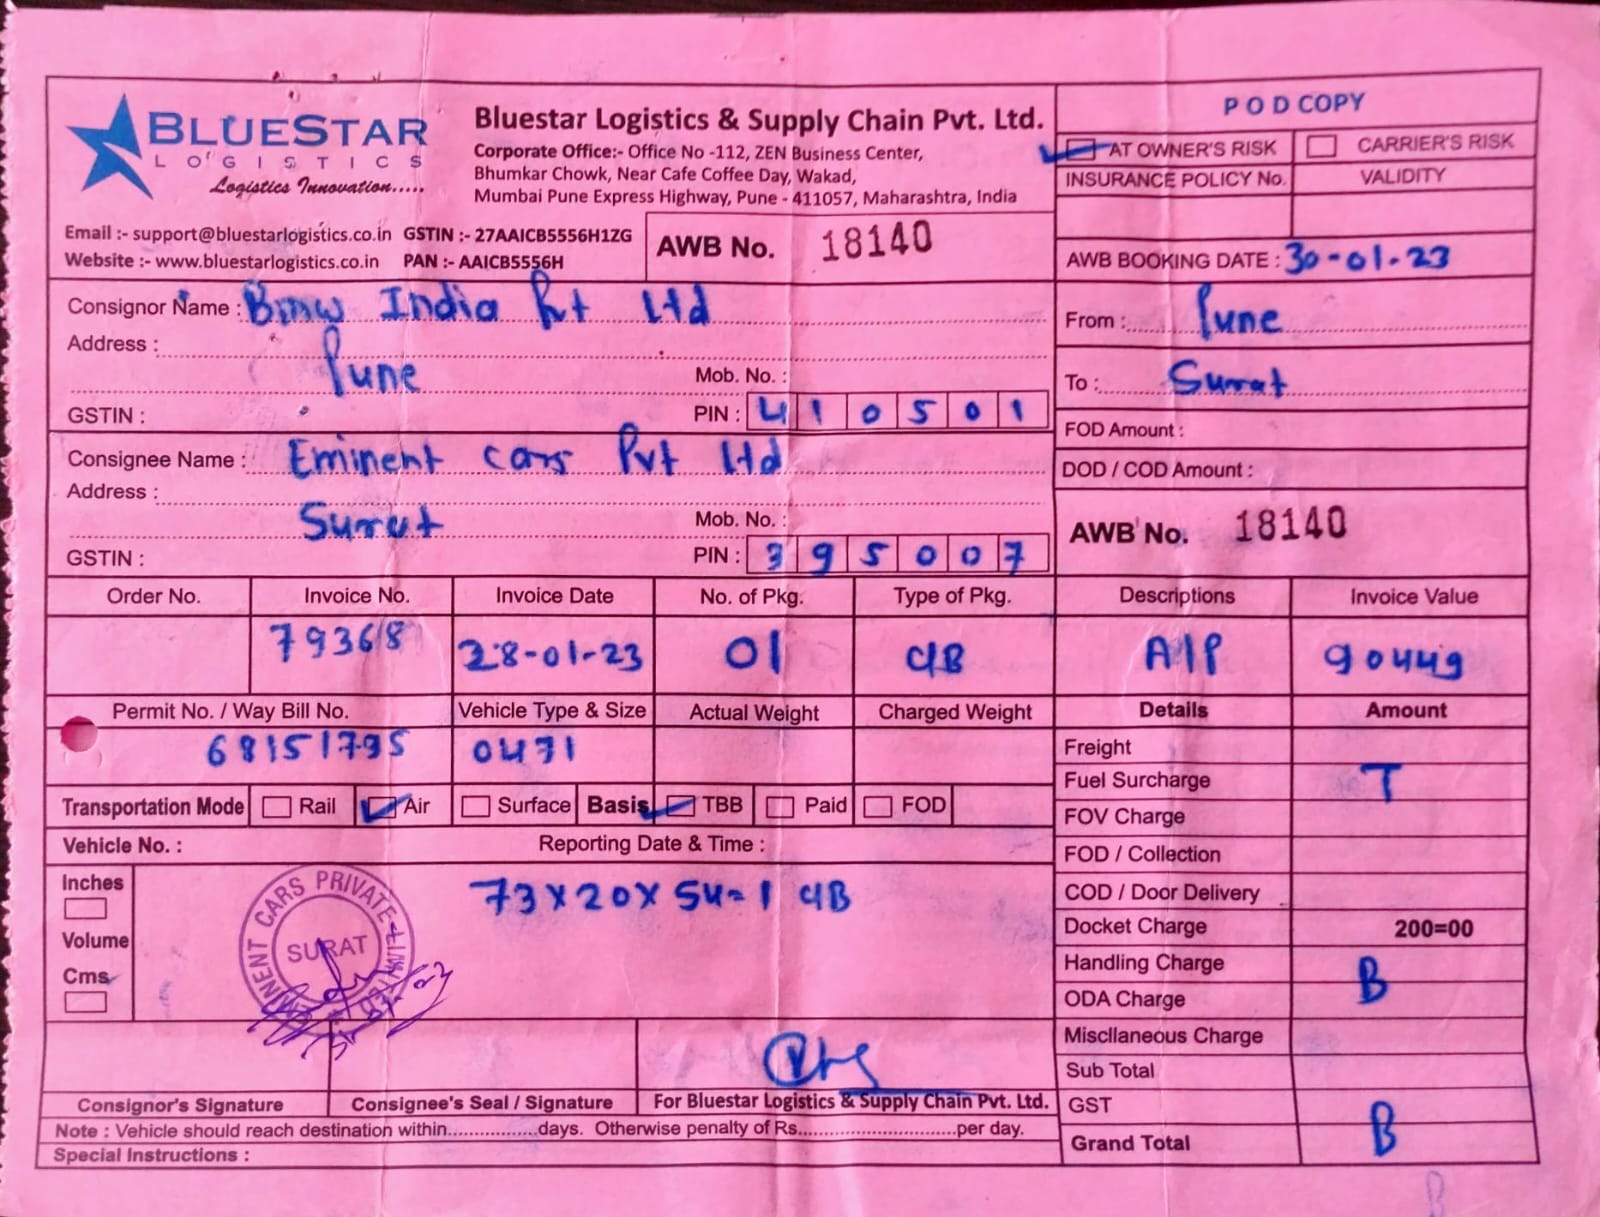 BLUESTAR
LOGISTICS
Logistics Innovation.....
Bluestar Logistics & Supply Chain Pvt. Ltd.
Corporate Office:- Office No -112, ZEN Business Center,
Bhumkar Chowk, Near Cafe Coffee Day, Wakad,
Mumbai Pune Express Highway, Pune - 411057, Maharashtra, India
Email :- support@bluestarlogistics.co.in GSTIN :- 27AAICB5556H1ZG
Website :- www.bluestarlogistics.co.in PAN :- AAICB5556H
AWB No. 18140
POD COPY
AT OWNER'S RISK CARRIER'S RISK
INSURANCE POLICY No. VALIDITY
AWB BOOKING DATE : 30-01-23
Consignor Name : Bmw India Pvt Ltd
Address :
Pune Mob. No. :
GSTIN : PIN : 410501
From : Pune
To : Surat
FOD Amount :
DOD / COD Amount :
Consignee Name : Eminent cars Pvt Ltd
Address :
Surat Mob. No. :
GSTIN : PIN : 395007
AWB No. 18140
Order No. Invoice No. Invoice Date No. of Pkg. Type of Pkg. Descriptions Invoice Value
79368 28-01-23 01 CIB A1P 90449
Permit No. / Way Bill No. Vehicle Type & Size Actual Weight Charged Weight Details Amount
68151795 0471
Transportation Mode Rail Air Surface Basis TBB Paid FOD
Vehicle No. : Reporting Date & Time :
Inches
Volume
Cms
73x20x54=1 CIB
EMINENT CARS PRIVATE LIMITED
SURAT
Freight
Fuel Surcharge T
FOV Charge
FOD / Collection
COD / Door Delivery
Docket Charge 200=00
Handling Charge
ODA Charge B
Miscllaneous Charge
Sub Total
GST
Grand Total B
Consignor's Signature Consignee's Seal / Signature For Bluestar Logistics & Supply Chain Pvt. Ltd.
Note : Vehicle should reach destination within.................days. Otherwise penalty of Rs.............................per day.
Special Instructions :